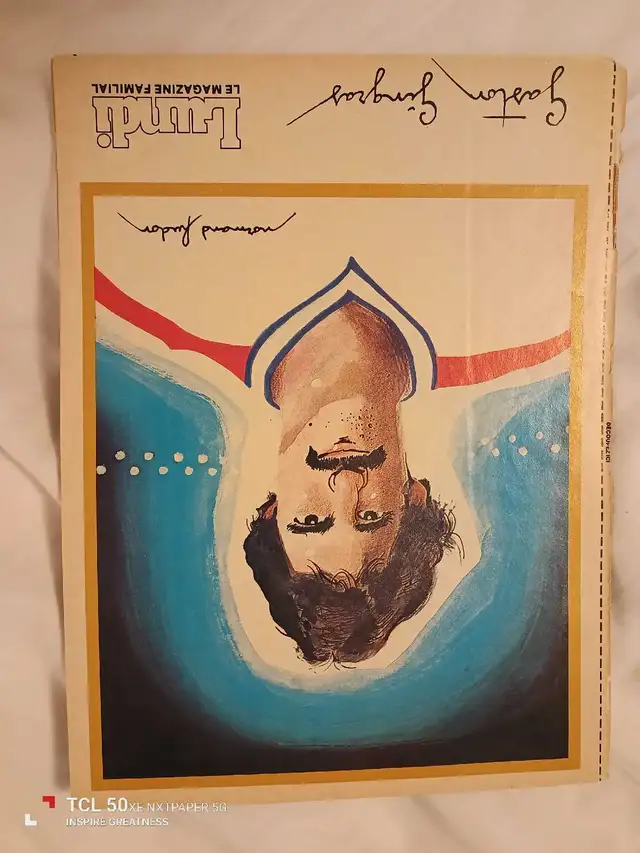 normand hudon
Gaston Gingras
Lundi
LE MAGAZINE FAMILIAL
DÉCOUPEZ ICI
TCL 50XE NXTPAPER 5G
INSPIRE GREATNESS